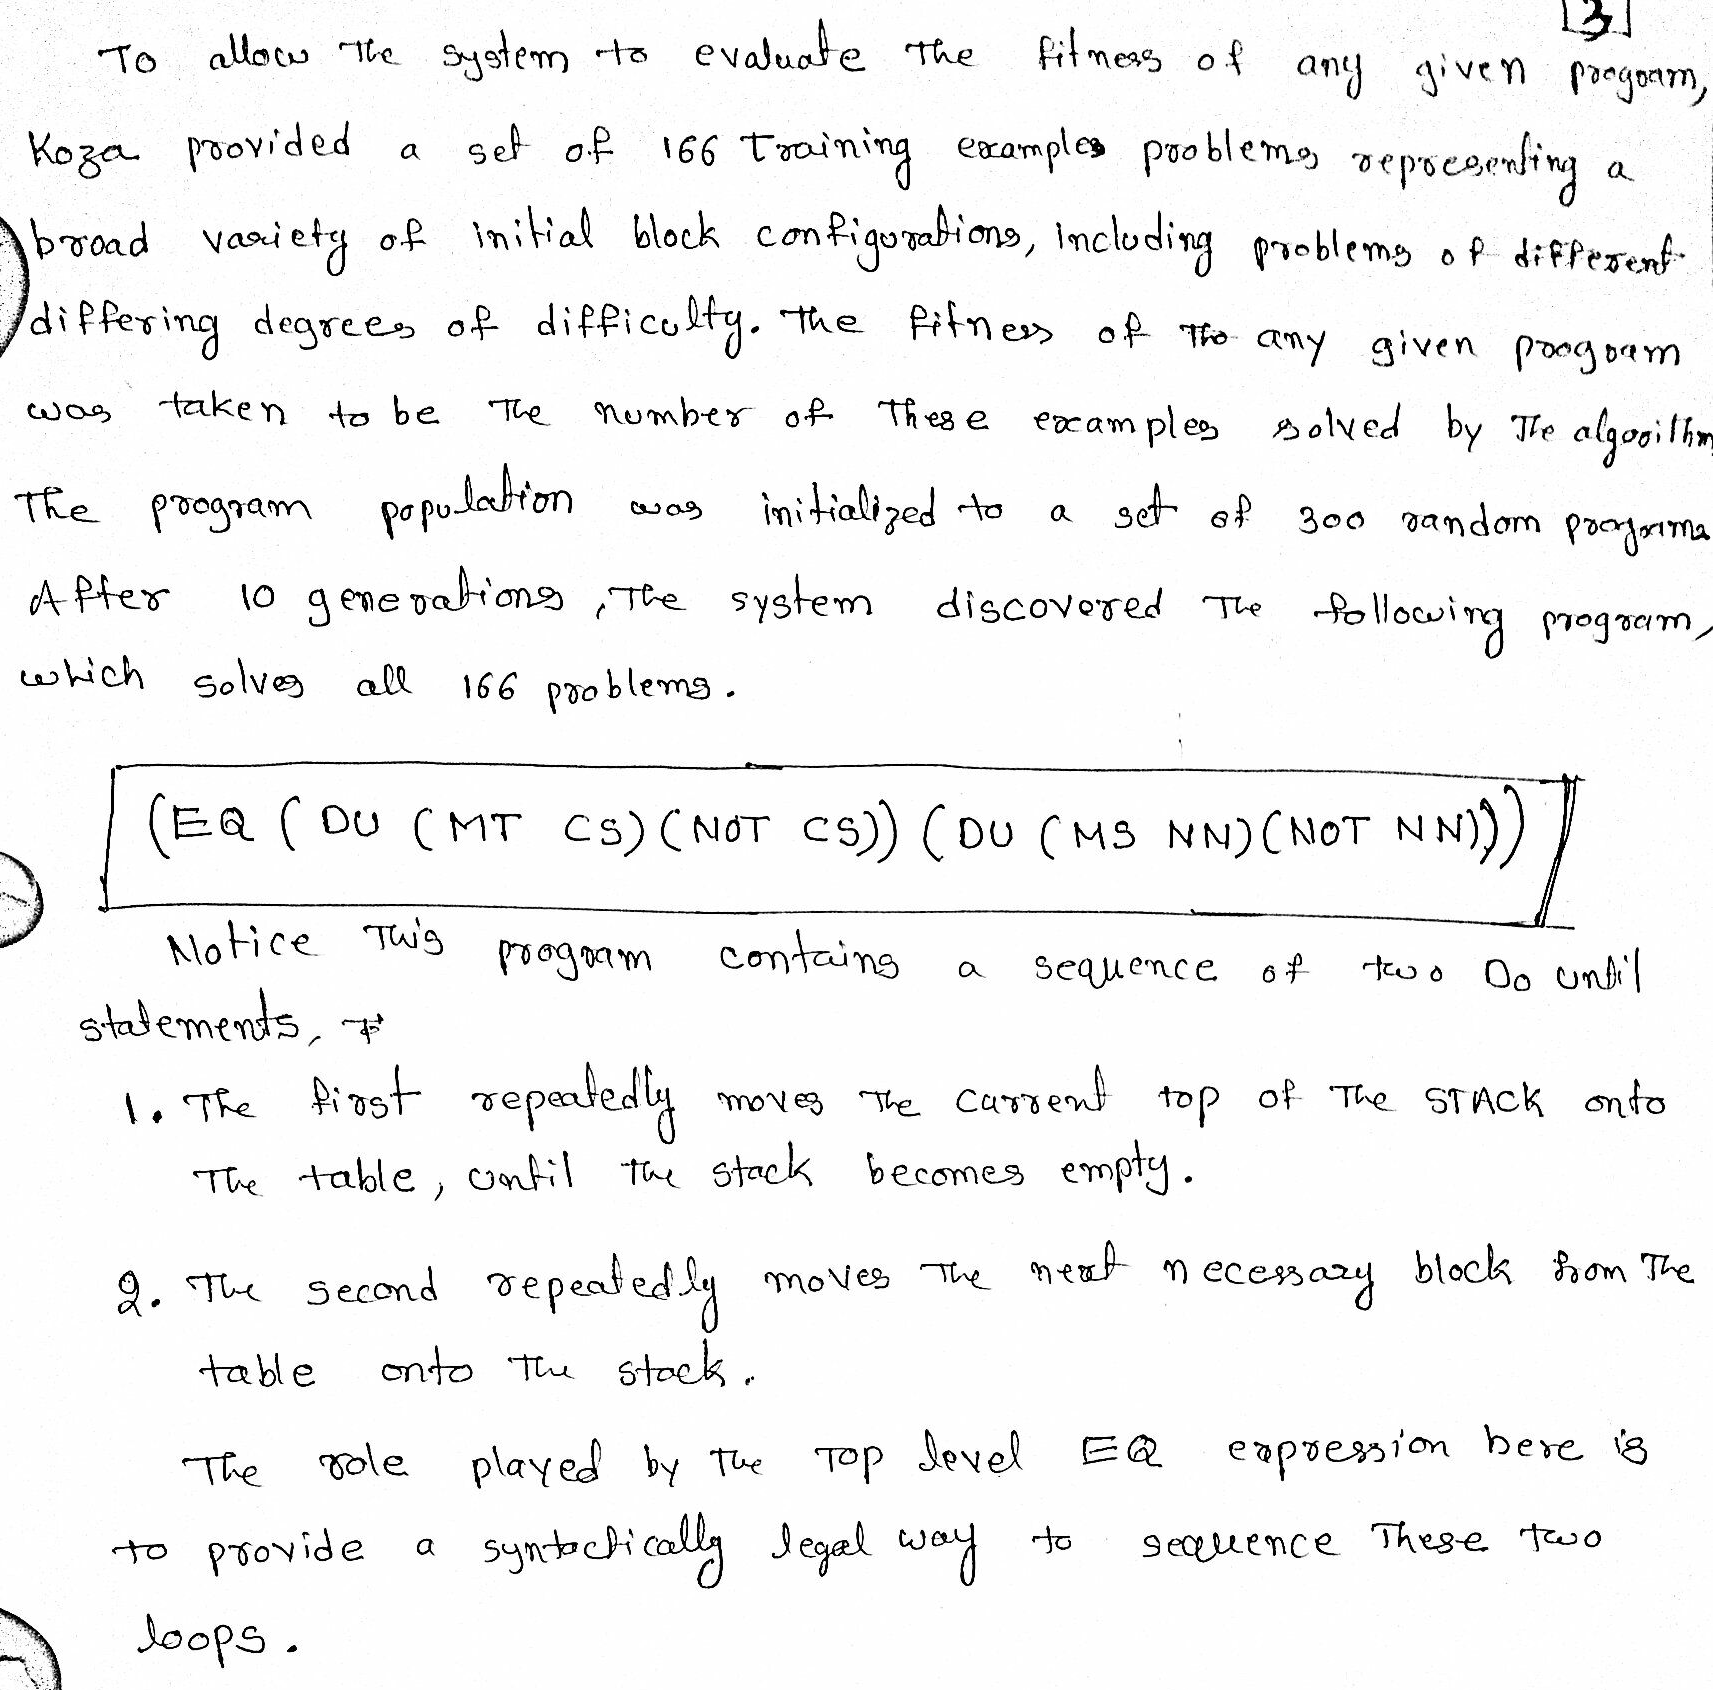 [3]
To allow the system to evaluate the fitness of any given program,
Koza provided a set of 166 Training examples problems representing a
broad variety of initial block configurations, including problems of different
differing degrees of difficulty. The fitness of the any given program
was taken to be the number of these examples solved by the algorithm
The program population was initialized to a set of 300 random programs
After 10 generations, the system discovered the following program,
which solves all 166 problems.
(EQ (DU (MT CS) (NOT CS)) (DU (MS NN) (NOT NN)))
Notice this program contains a sequence of two Do until
statements,
1. The first repeatedly moves the current top of the STACK onto
the table, until the stack becomes empty.
2. The second repeatedly moves the next necessary block from the
table onto the stack.
The role played by the Top level EQ expression here is
to provide a syntactically legal way to sequence these two
loops.